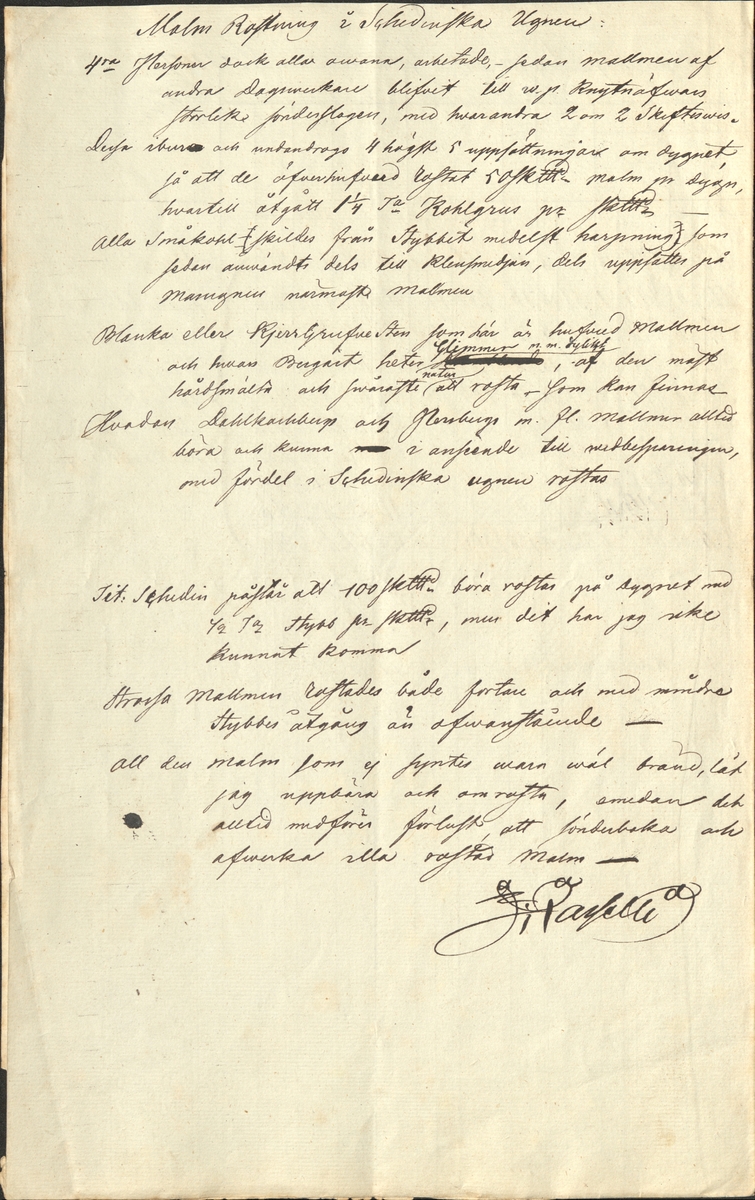 Malm Rostning i Schedinska Ugnen:
4ra Personer dock allas owana, arbetade, – sedan mallmen af
andra Dagsverkare blifvit till w.p. Knytnäfvars
storlek sönderslagen, med hvarandra 2 om 2 Skiftswis.
Dessa iburo och undandrogo 4 högst 5 uppsättningar om dygnet
så att de öfverhufved Rostat 50 skttd malm pr dygn,
hvartill åtgått 1¼ Ta Kohlgrus pr skttd —
Alla Småkohl (skildes från Stybbet medelst harpning) som
sedan användts dels till Klensmedjan, dels uppsattes på
Masugnen närmast Mallmen
Blanka eller KjerrGrufve sten som här är hufvud Mallmen
och hvars Bergart heter Glimmer m.m. dylikt, af den mäst
hårdsmälta och svåraste natur att rosta – som kan finnas
Hvadan Dahlkarlsbergs och Persbergs m. fl. Mallmer alltid
böra och kunna i anseende till wedbesparingen,
med fördel i Schedinska ugnen rostas
Tit: Schedin påstår att 100 skttd böra rostas på dygnet med
½ Ta Stybb pr skttd, men det har jag icke
kunnat komma
Strossa Mallmen Rostades både fortare och med mindre
Stybbes åtgång än ofwanstående —
All den malm som ej syntes wara wäl bränd, lät
jag uppbära och omrosta, emedan det
alltid medförer förlust, att sönderboka och
afwerka illa rostad Malm —